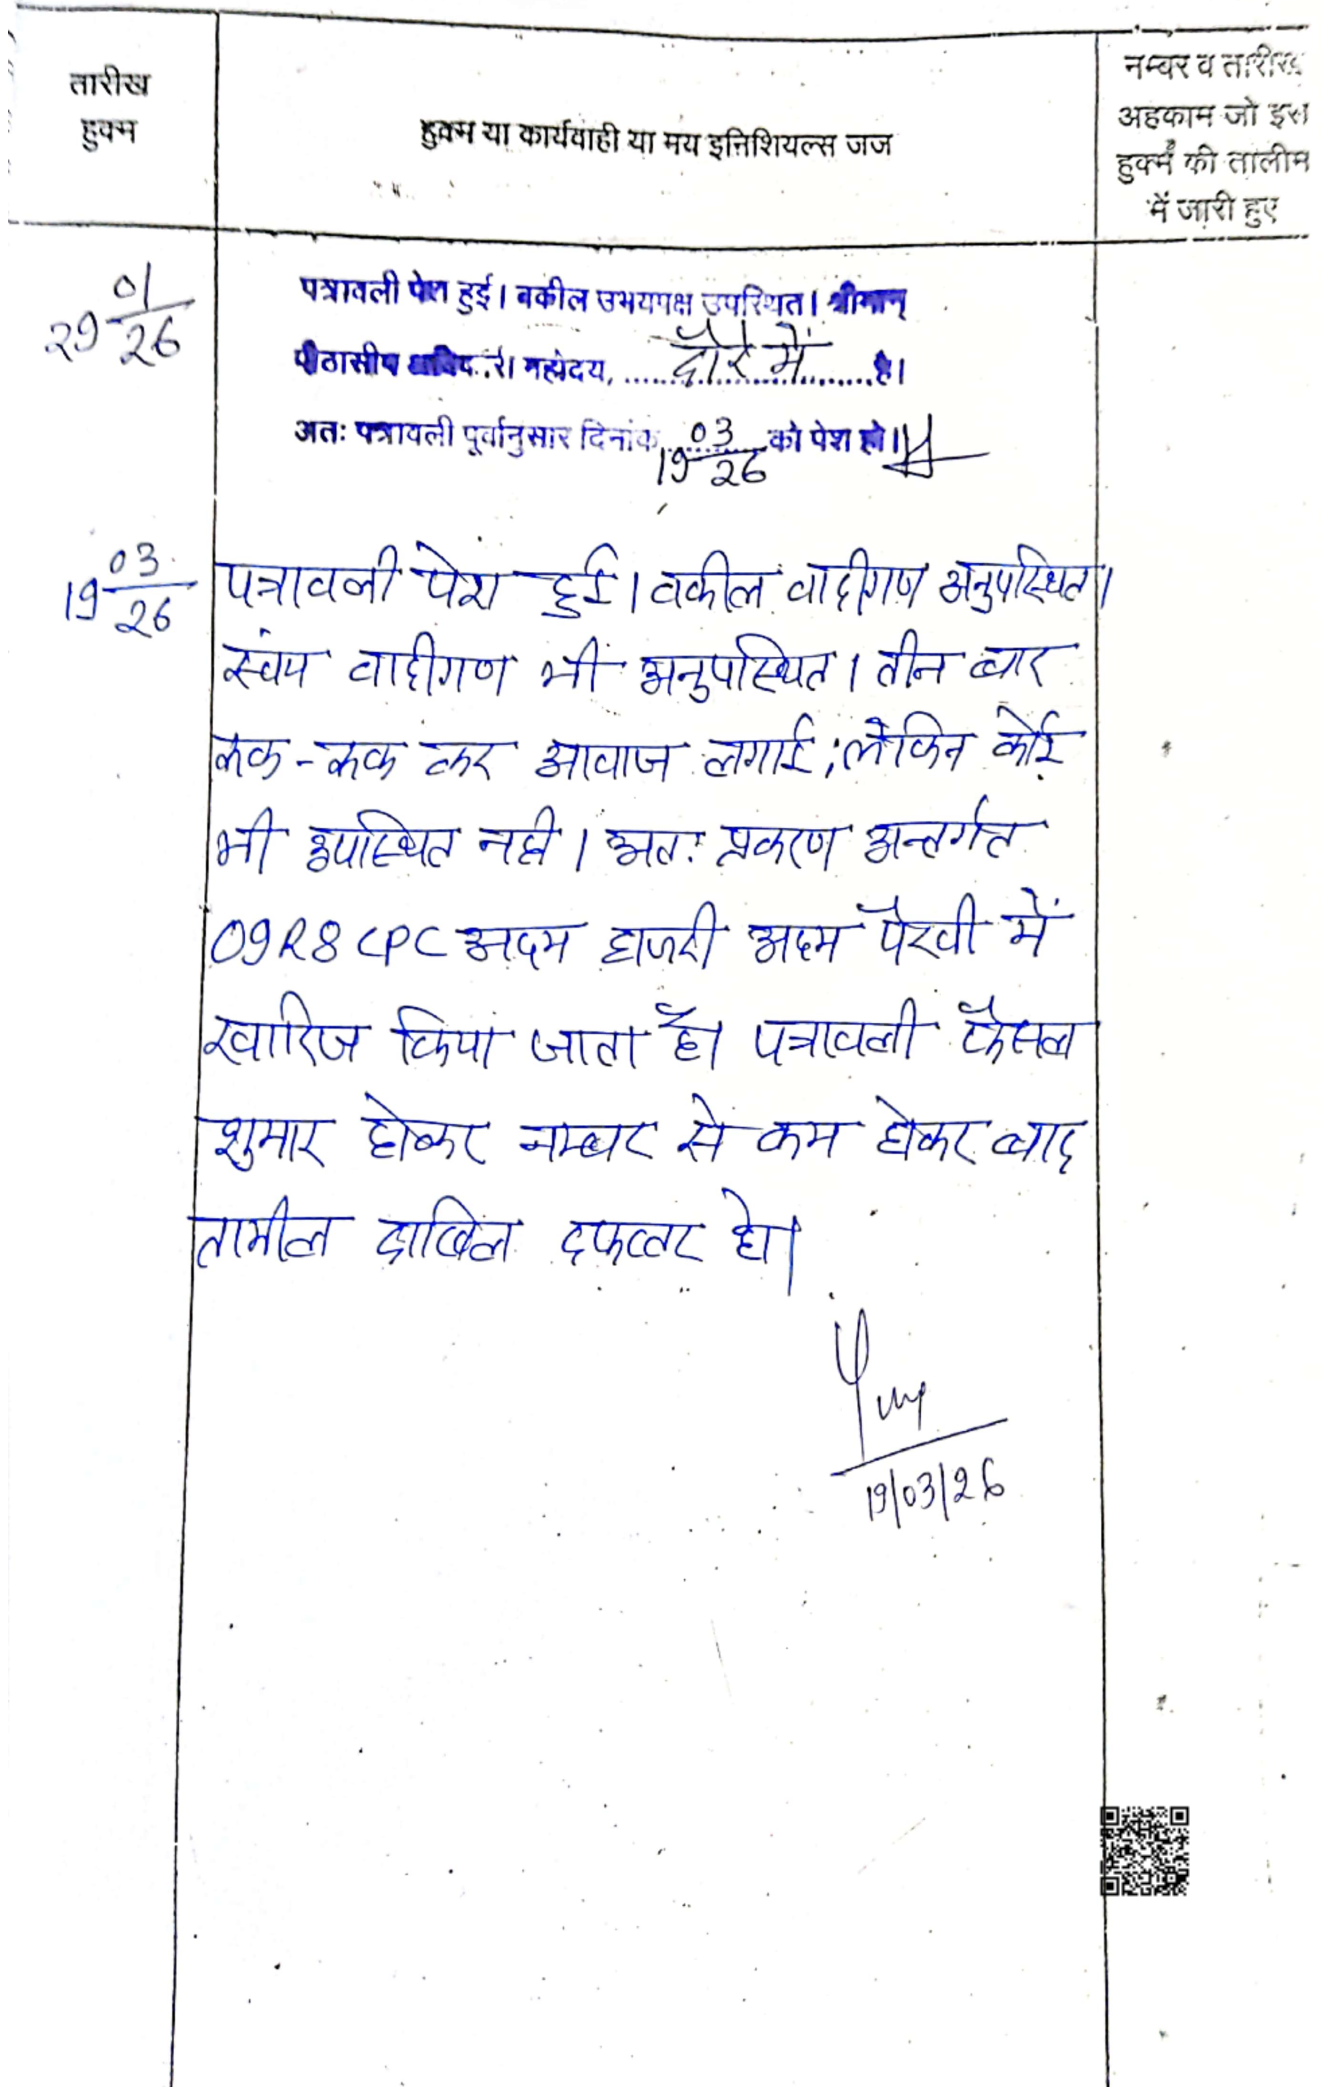 तारीख
हुक्म
हुक्म या कार्यवाही या मय इनिशियल्स जज
नम्बर व तारीख
अहकाम जो इस
हुक्म की तालीम
में जारी हुए
29 01/26
पत्रावली पेश हुई। वकील उभयपक्ष उपस्थित। श्रीमान्
पीठासीन महोदय, दौरे में है।
अतः पत्रावली पूर्वानुसार दिनांक 19 03/26 को पेश हो।
19 03/26
पत्रावली पेश हुई। वकील वादीगण अनुपस्थित।
स्वंय वादीगण भी अनुपस्थित। तीन बार
रूक-रूक कर आवाज लगाई, लेकिन कोई
भी उपस्थित नही। अतः प्रकरण अन्तर्गत
O9R8 CPC अदम हाजरी अदम पैरवी में
खारिज किया जाता है। पत्रावली फैसल
शुमार होकर नम्बर से कम होकर बाद
तामील दाखिल दफ्तर हो।
19/03/26